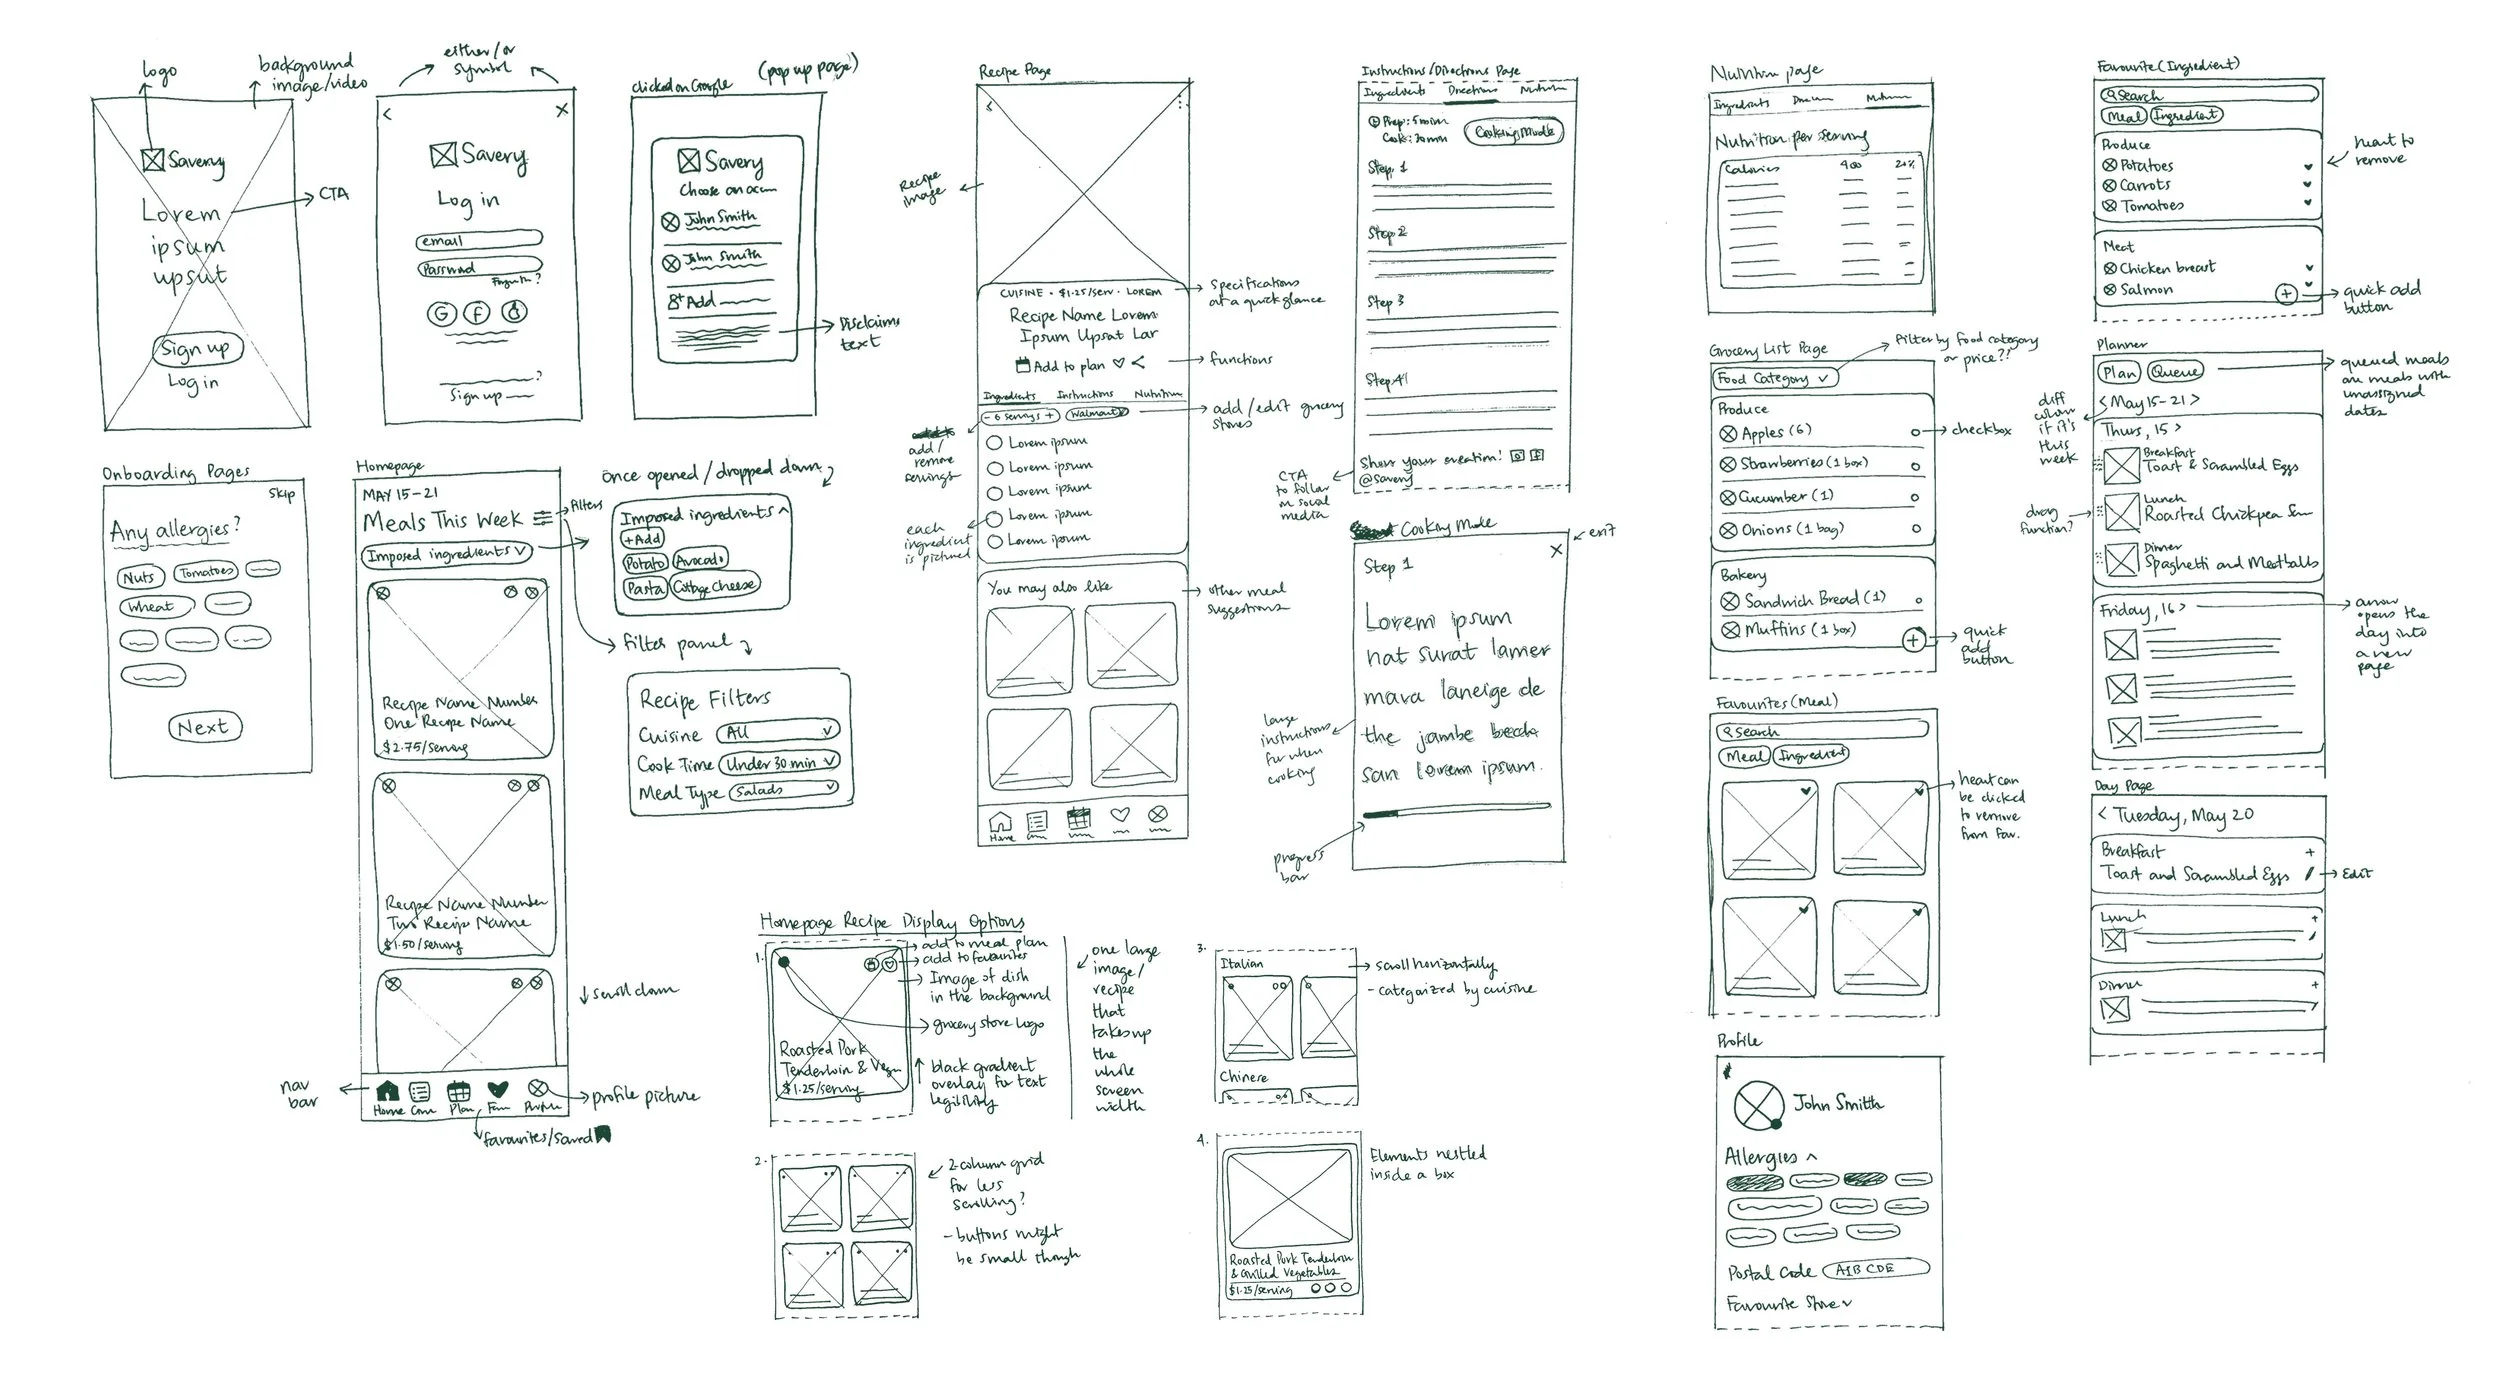 logo
background
image/video
Savery
Lorem
ipsum
upsut
CTA
Sign up
Log in
either/or
symbol
<
X
Savery
Log in
email
Password
G f
?
Sign up
clicked on Google
(pop up page)
Savery
Choose an
John Smith
John Smith
Add
Disclaimer
text
Onboarding Pages
Skip
Any allergies?
Nuts
Tomatoes
Wheat
Next
Homepage
MAY 15-21
Meals This Week
filters
Imposed ingredients
Recipe Name Number
One Recipe Name
$2.75/serving
Recipe Name Number
Two Recipe Name
$1.50/serving
scroll down
nav
bar
Home
Plan
Profile
profile picture
favourites/saved
once opened/dropped down
Imposed ingredients
+Add
Potato
Avocado
Pasta
Cottage Cheese
filter panel
Recipe Filters
Cuisine
All
Cook Time
Under 30 min
Meal Type
Salads
Recipe Page
Recipe
image
CUISINE · $1.25/serv · LOREM
Recipe Name Lorem
Ipsum Upsat Lar
Specifications
at a quick glance
Add to plan
functions
Ingredients
Instructions
Nutrition
- 6 servings +
Walmart
add/edit grocery
stores
add/
remove
servings
Lorem ipsum
Lorem ipsum
Lorem ipsum
Lorem ipsum
Lorem ipsum
each
ingredient
is pictured
You may also like
other meal
suggestions
Home
Homepage Recipe Display Options
1.
add to meal plan
add to favourites
Image of dish
in the background
grocery store logo
Roasted Pork
Tenderloin & Vegu
$1.25/serving
black gradient
overlay for text
legibility
one large
image/
recipe
that
takes up
the
whole
screen
width
2.
2-column grid
for less
scrolling?
- buttons might
be small though
3.
Italian
Chinese
scroll horizontally
- categorized by cuisine
4.
Elements nestled
inside a box
Roasted Pork Tenderloin
& Grilled Vegetables
$1.25/serving
Instructions/Directions Page
Ingredients
Directions
Nutrition
Prep: 5 min
Cook: 30 min
Cooking Mode
Step 1
Step 2
Step 3
Step 4
Show your creation!
@savery
CTA
to follow
on social
media
Cooking Mode
exit
X
Step 1
Lorem ipsum
nat surat lamer
mara laneige de
the jambe
san lorem ipsum.
large
instructions
for when
cooking
progress
bar
Nutrition page
Ingredients
Nutrition
Nutrition per serving
Calories
400
20%
Grocery List Page
Filter by food category
or price??
Food Category
Produce
Apples (6)
checkbox
Strawberries (1 box)
Cucumber (1)
Onions (1 bag)
Bakery
Sandwich Bread (1)
Muffins (1 box)
quick
add
button
Favourites (Meal)
Search
Meal
Ingredient
heart can
be clicked
to remove
from fav.
Profile
John Smith
Allergies
Postal Code
A1B CDE
Favourite Store
Favourite (Ingredient)
Search
Meal
Ingredient
Produce
Potatoes
Carrots
Tomatoes
heart to
remove
Meat
Chicken breast
Salmon
quick add
button
Planner
Plan
Queue
queued meals
are meals with
unassigned
dates
< May 15-21 >
diff
colour
if it's
this
week
Thurs, 15 >
Breakfast
Toast & Scrambled Eggs
Lunch
Roasted Chickpea
Dinner
Spaghetti and Meatballs
drag
function?
Friday, 16 >
arrow
opens the
day into
a new
page
Day Page
< Tuesday, May 20
Breakfast +
Toast and Scrambled Eggs
Edit
Lunch +
Dinner +